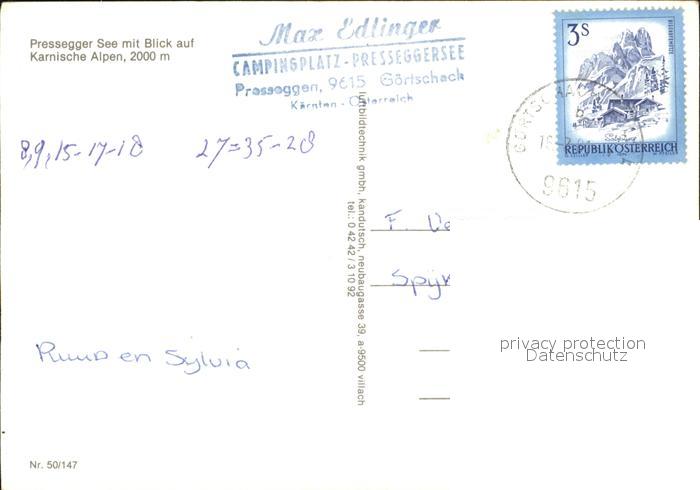 Pressegger See mit Blick auf
Karnische Alpen, 2000 m
Max Edlinger
CAMPINGPLATZ-PRESSEGGERSEE
Presseggen, 9615 Görtschach
Kärnten - Österreich
3S
REPUBLIK ÖSTERREICH
9615
8,9,15-17-18 27=35-28
luftbildtechnik gmbh, kandutsch, neubaugasse 39, a-9500 villach
tel.: 0 42 42 / 3 10 92
F. Ve
Spijk
privacy protection
Datenschutz
Ruud en Sylvia
Nr. 50/147